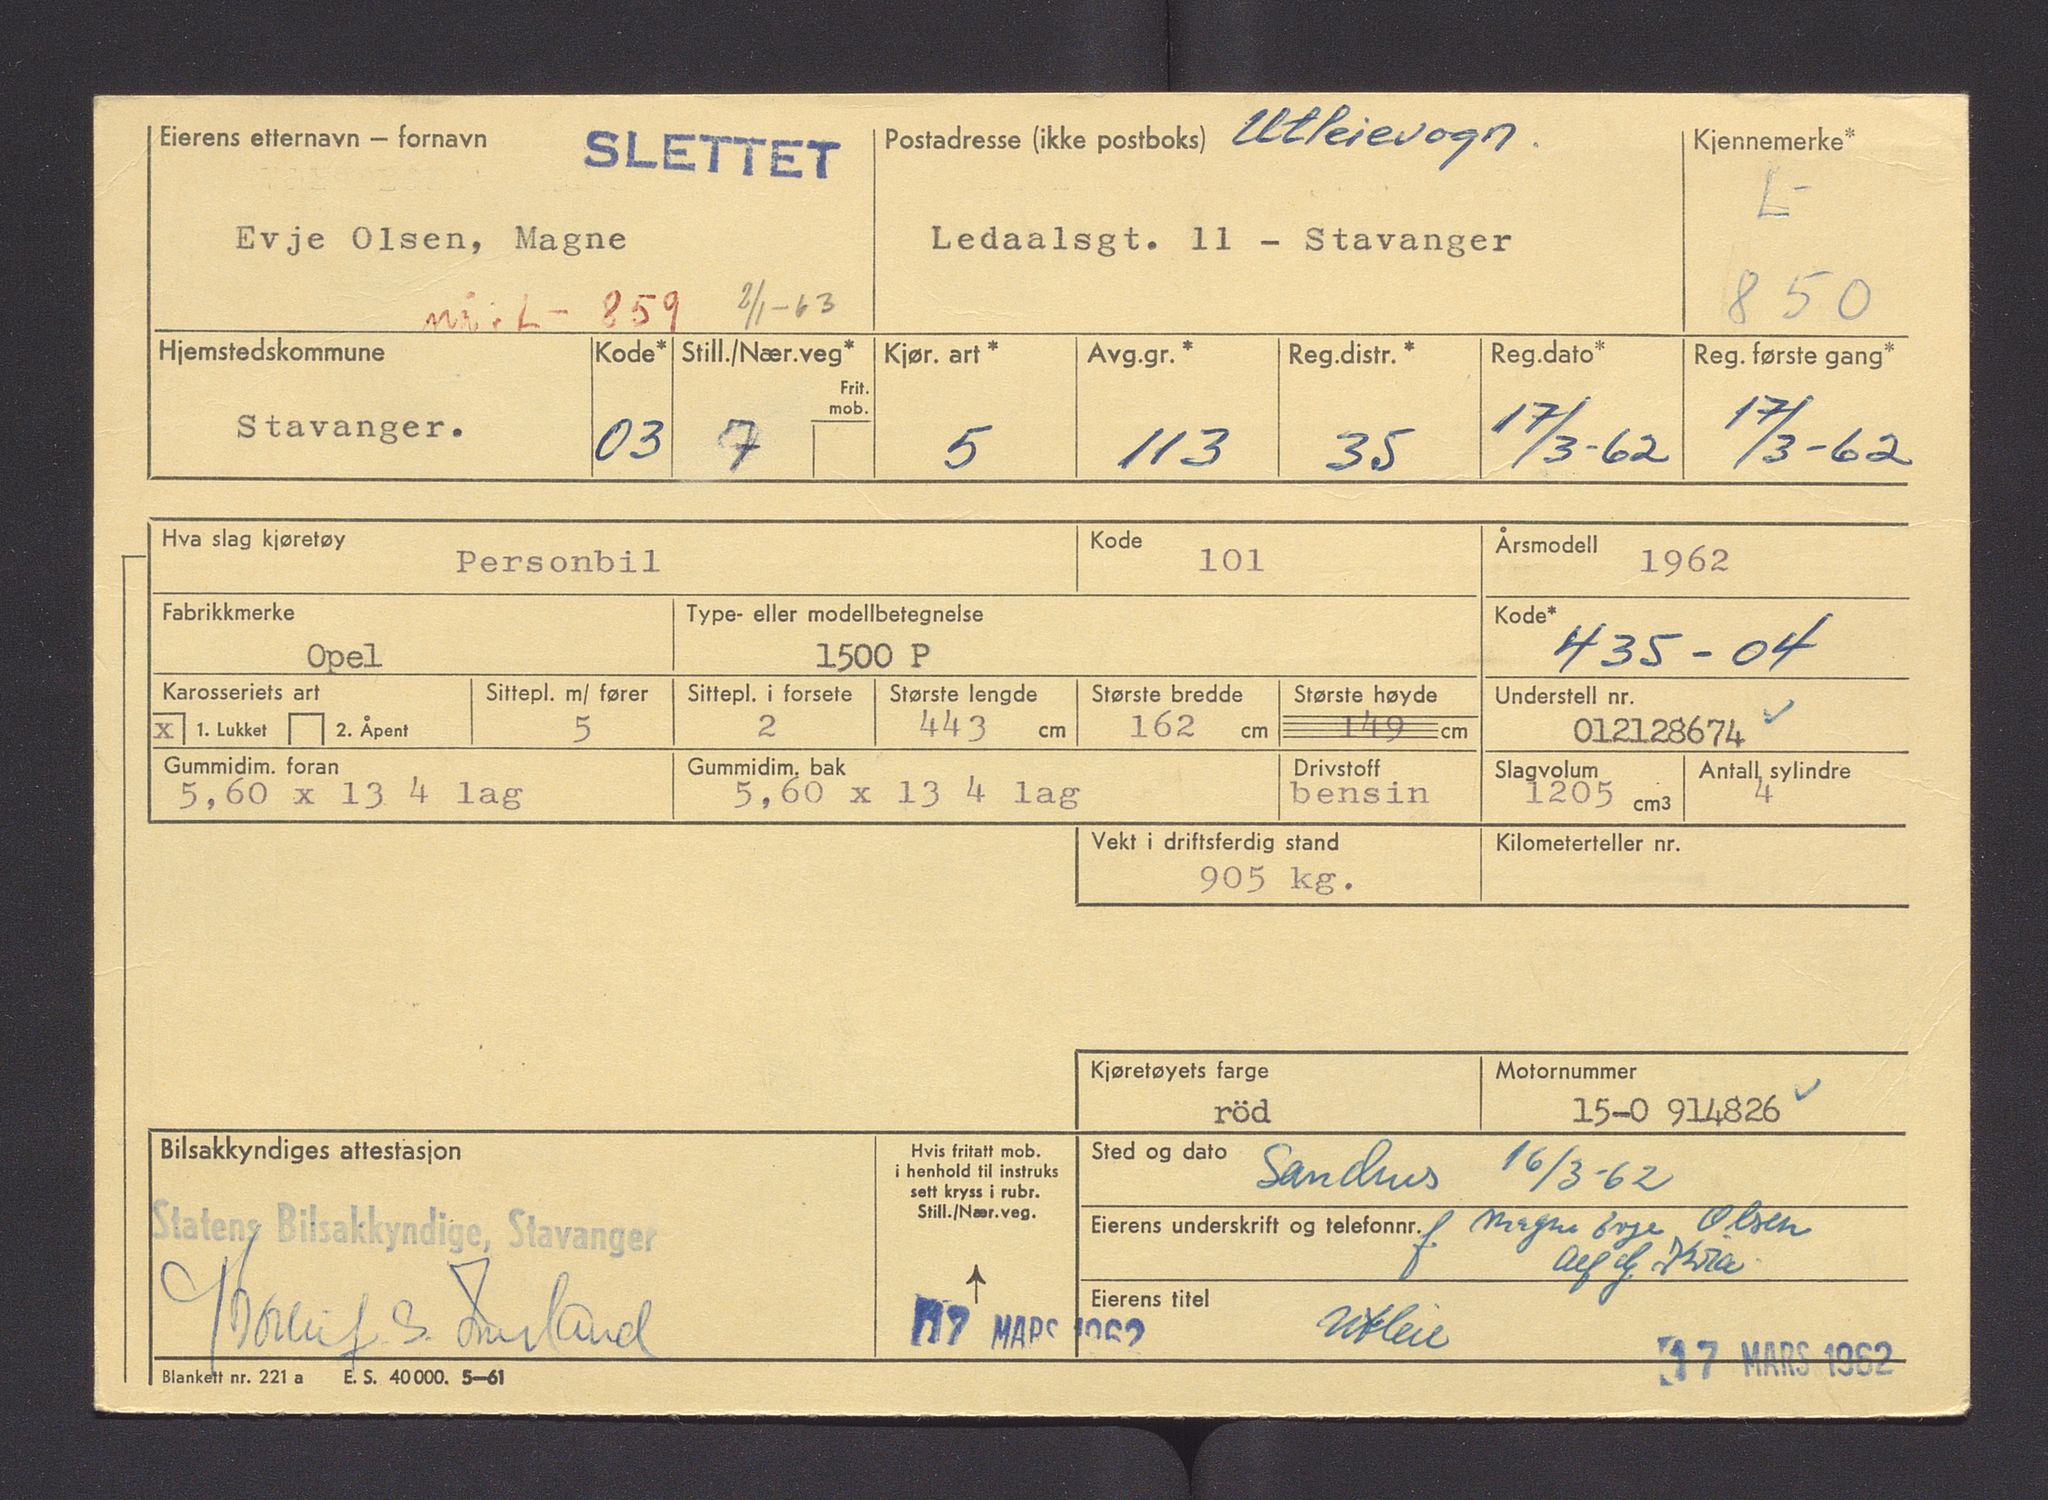 Eierens etternavn – fornavn SLETTET Postadresse (ikke postboks) Utleievogn. Kjennemerke*
Evje Olsen, Magne Ledaalsgt. 11 - Stavanger L-
nå: L- 859 2/1-63 850
Hjemstedskommune Kode* Still./Nær.veg* Kjør. art* Avg.gr.* Reg.distr.* Reg.dato* Reg. første gang*
Frit. mob.
Stavanger. 03 7 5 113 35 17/3-62 17/3-62
Hva slag kjøretøy Personbil Kode 101 Årsmodell 1962
Fabrikkmerke Type- eller modellbetegnelse Kode*
Opel 1500 P 435-04
Karosseriets art Sittepl. m/ fører Sittepl. i forsete Største lengde Største bredde Største høyde Understell nr.
x 1. Lukket 2. Åpent 5 2 443 cm 162 cm 149 cm 012128674
Gummidim. foran Gummidim. bak Drivstoff Slagvolum Antall sylindre
5,60 x 13 4 lag 5,60 x 13 4 lag bensin 1205 cm3 4
Vekt i driftsferdig stand Kilometerteller nr.
905 kg.
Kjøretøyets farge Motornummer
röd 15-0 914826
Bilsakkyndiges attestasjon
Statens Bilsakkyndige, Stavanger
Hvis fritatt mob.
i henhold til instruks
sett kryss i rubr.
Still./Nær.veg.
17 MARS 1962
Sted og dato Sandnes 16/3-62
Eierens underskrift og telefonnr. f. Magne Evje Olsen
Eierens titel Utleie
17 MARS 1962
Blankett nr. 221 a E. S. 40 000. 5–61